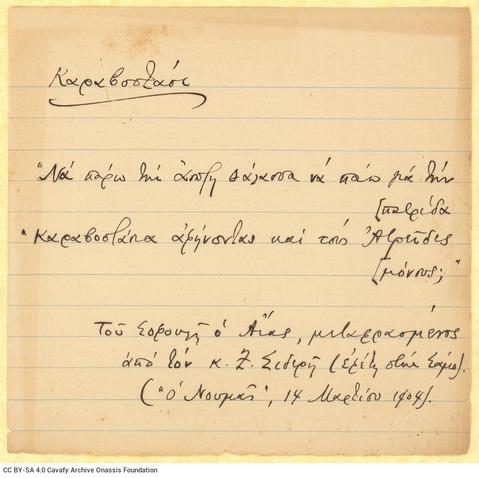 Καραβοστάσι
"Νά πάρω τήν άπυξη θάλασσα νά πάω γιά τήν
[πατρίδα
"Καραβοστάσια ἀφήνοντας καί τούς Ἀτρεῖδες
[μόνους;"
Τοῦ Σοφουλῆ ὁ Αἴας, μεταφρασμένος
ἀπό τόν κ. Ζ. Σιδερῆ (ἐβγῆκε στήν Σάμο).
("ὁ Νουμᾶς", 14 Μαρτίου 1904).
CC BY-SA 4.0 Cavafy Archive Onassis Foundation